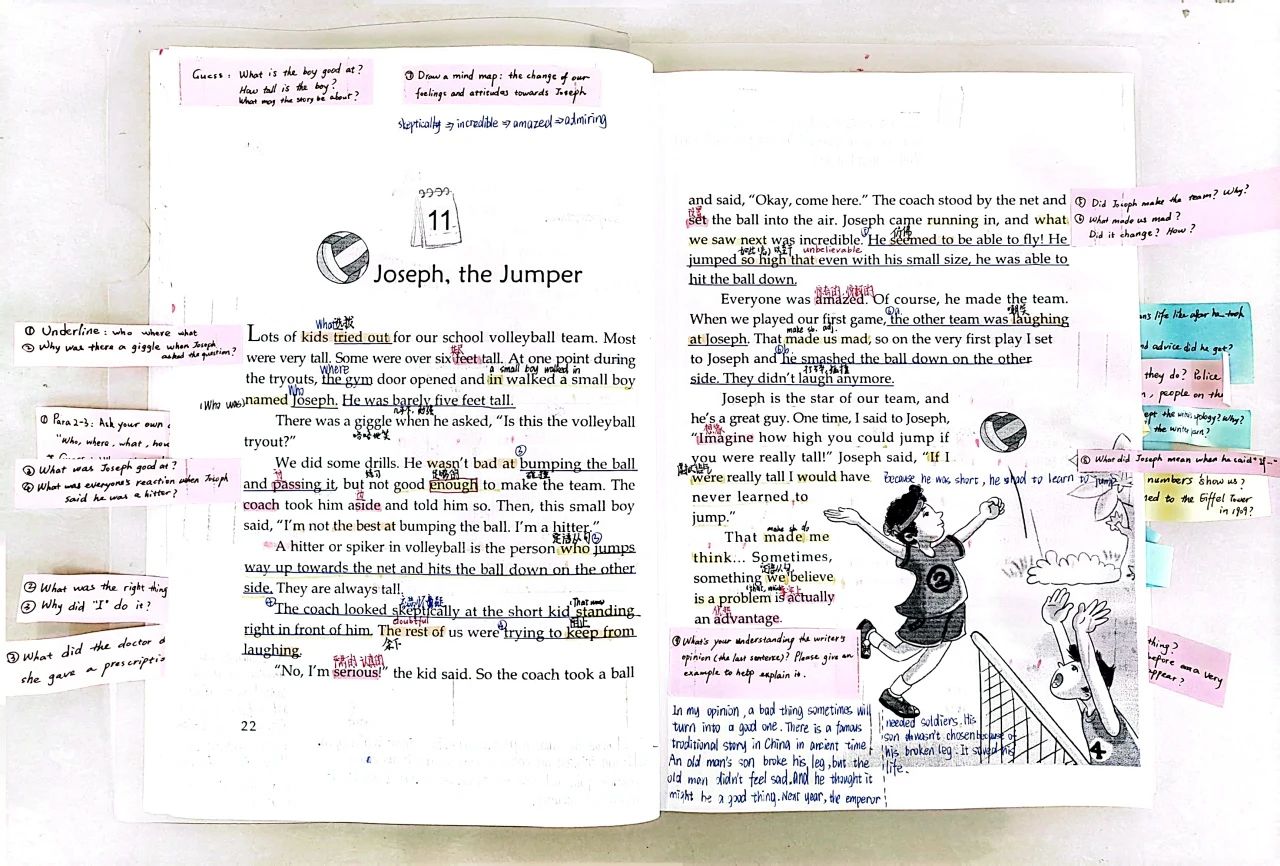 Guess: What is the boy good at?
How tall is the boy?
What may the story be about?
Draw a mind map: the change of our
feelings and attitudes towards Joseph
skeptically ⇒ incredible ⇒ amazed ⇒ admiring
11
Joseph, the Jumper
① Underline: who where what
② Why was there a giggle when Joseph
asked the question?
What 选拔
Lots of kids tried out for our school volleyball team. Most
were very tall. Some were over six feet tall. At one point during
Where
a small boy walked in
the tryouts, the gym door opened and in walked a small boy
Who
(Who was) named Joseph. He was barely five feet tall.
There was a giggle when he asked, “Is this the volleyball
tryout?”
① Para 2-3: Ask your own
"Who, where, what, how
③ What was Joseph good at?
④ What was everyone's reaction when Joseph
said he was a hitter?
We did some drills. He wasn’t bad at bumping the ball
and passing it, but not good enough to make the team. The
coach took him aside and told him so. Then, this small boy
said, “I’m not the best at bumping the ball. I’m a hitter.”
定语从句
A hitter or spiker in volleyball is the person who jumps
way up towards the net and hits the ball down on the other
side. They are always tall.
② What was the right thing
③ Why did "I" do it?
The coach looked skeptically at the short kid standing
doubtful
right in front of him. The rest of us were trying to keep from
余下
laughing.
③ What did the doctor
she gave a prescriptio
“No, I’m serious!” the kid said. So the coach took a ball
22
and said, “Okay, come here.” The coach stood by the net and
set the ball into the air. Joseph came running in, and what
we saw next was incredible. He seemed to be able to fly! He
unbelievable
jumped so high that even with his small size, he was able to
hit the ball down.
Everyone was amazed. Of course, he made the team.
嘲笑
When we played our first game, the other team was laughing
make sb. adj.
at Joseph. That made us mad, so on the very first play I set
to Joseph and he smashed the ball down on the other
side. They didn’t laugh anymore.
Joseph is the star of our team, and
he’s a great guy. One time, I said to Joseph,
想象
“Imagine how high you could jump if
you were really tall!” Joseph said, “If I
were really tall I would have
because he was short, he had to learn to jump
never learned to
jump.”
make sb do
That made me
think... Sometimes,
定语从句
something we believe
is a problem is actually
优势
an advantage.
⑤ Did Joseph make the team? Why?
⑥ What made us mad?
Did it change? How?
life like after he took
advice did he get?
they do? Police
, people on the
the writer's apology? Why?
the writer learn?
⑧ What did Joseph mean when he said "If…"
numbers show us?
ed to the Eiffel Tower
in 1909?
thing?
before on a very
appear?
What's your understanding the writer's
opinion (the last sentence)? Please give an
example to help explain it.
In my opinion, a bad thing sometimes will
turn into a good one. There is a famous
traditional story in China in ancient time
An old man's son broke his leg, but the
old man didn't feel sad, and he thought it
might be a good thing. Next year, the emperor
needed soldiers. His
son wasn't chosen because of
his broken leg. It saved his
life.
2
4